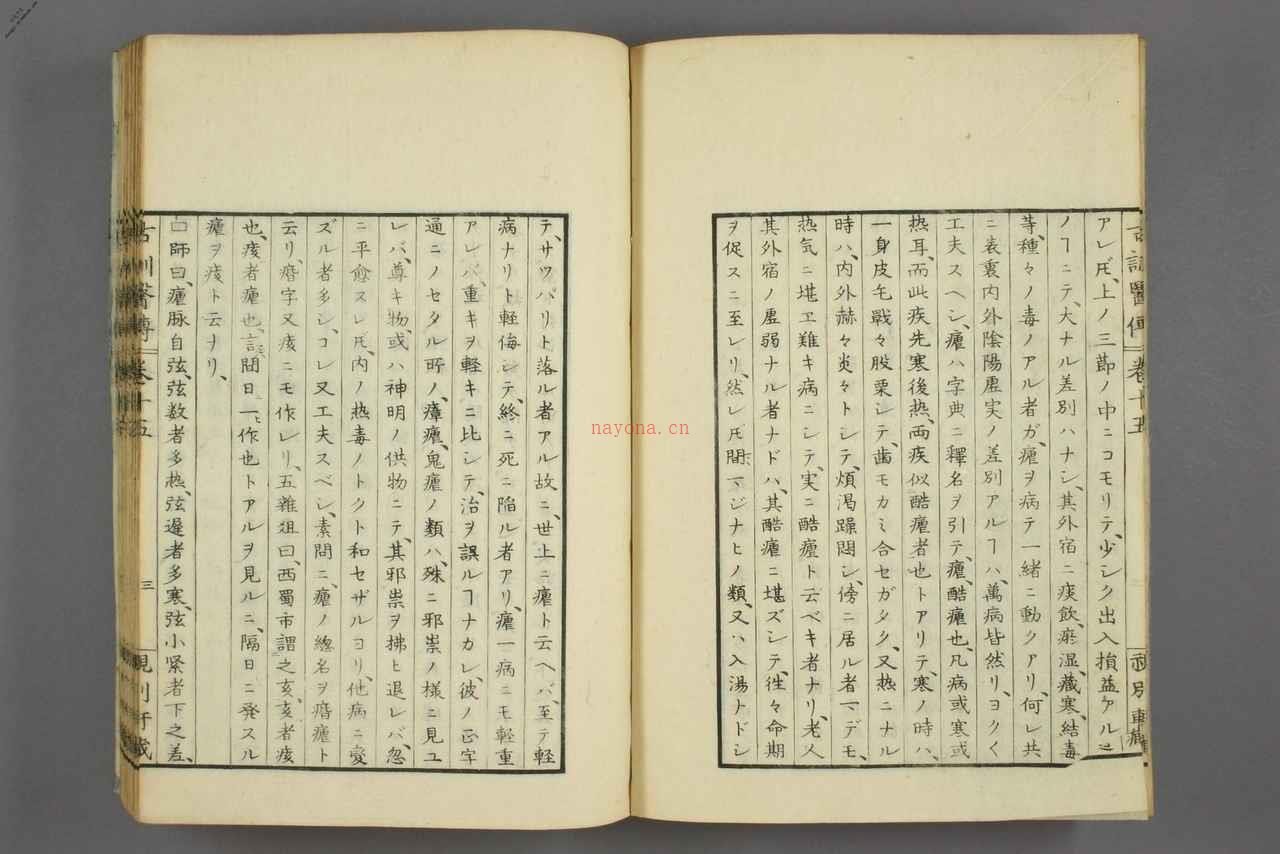 アレ𪜈、上ノ三節ノ中ニコモリテ、少シク出入損益アル迠
ノヿニテ、大ナル差別ハナシ、其外宿ニ痰飲、瘀湿、蔵寒、結毒
等、種々ノ毒ノアル者ガ、瘧ヲ病テ一緒ニ動クアリ、何レ共
ニ表裏内外陰陽虚実ノ差別アルヿハ、萬病皆然リ、ヨクく
工夫スヘシ、瘧ハ字典ニ釋名ヲ引テ、瘧、酷瘧也、凡病或寒或
熱耳、而此疾先寒後熱、両疾似酷瘧者也トアリテ、寒ノ時ハ、
一身皮毛戰々股栗シテ、歯モカミ合セガタク、又熱ニナル
時ハ、内外赫々炎々トシテ、煩渇躁悶シ、傍ニ居ル者マデモ、
熱気ニ堪エ難キ病ニシテ、実ニ酷瘧ト云ベキ者ナリ、老人
其外宿ノ虚弱ナル者ナドハ、其酷瘧ニ堪ズシテ、往々命期
ヲ促スニ至レリ、然レ𪜈間マジナヒノ類、又ハ入湯ナドシ
テ、サツパリト落ル者アル故ニ、世上ニ瘧ト云ヘバ、至テ軽
病ナリト軽侮シテ、終ニ死ニ陥ル者アリ、瘧一病ニモ軽重
アレバ、重キヲ軽キニ比シテ、治ヲ誤ルヿナカレ、彼ノ正字
通ニノセタル所ノ、瘴瘧、鬼瘧ノ類ハ、殊ニ邪祟ノ様ニ見ユ
レバ、尊キ物、或ハ神明ノ供物ニテ、其邪祟ヲ拂ヒ退レバ、忽
ニ平愈スレ𪜈、内ノ熱毒ノトクト和セザルヨリ、他病ニ變
ズル者多シ、コレ又工夫スベシ、素問ニ、瘧ノ總名ヲ痎瘧ト
云リ、痎字又痎ニモ作レリ、五雜俎曰、西蜀市謂之亥、亥者痎
也、痎者瘧也、言間日一作也トアルヲ見ルニ、隔日ニ発スル
瘧ヲ痎ト云ナリ、
師曰、瘧脉自弦、弦数者多熱、弦遲者多寒、弦小緊者下之差、
卷十五
三
nayona.cn